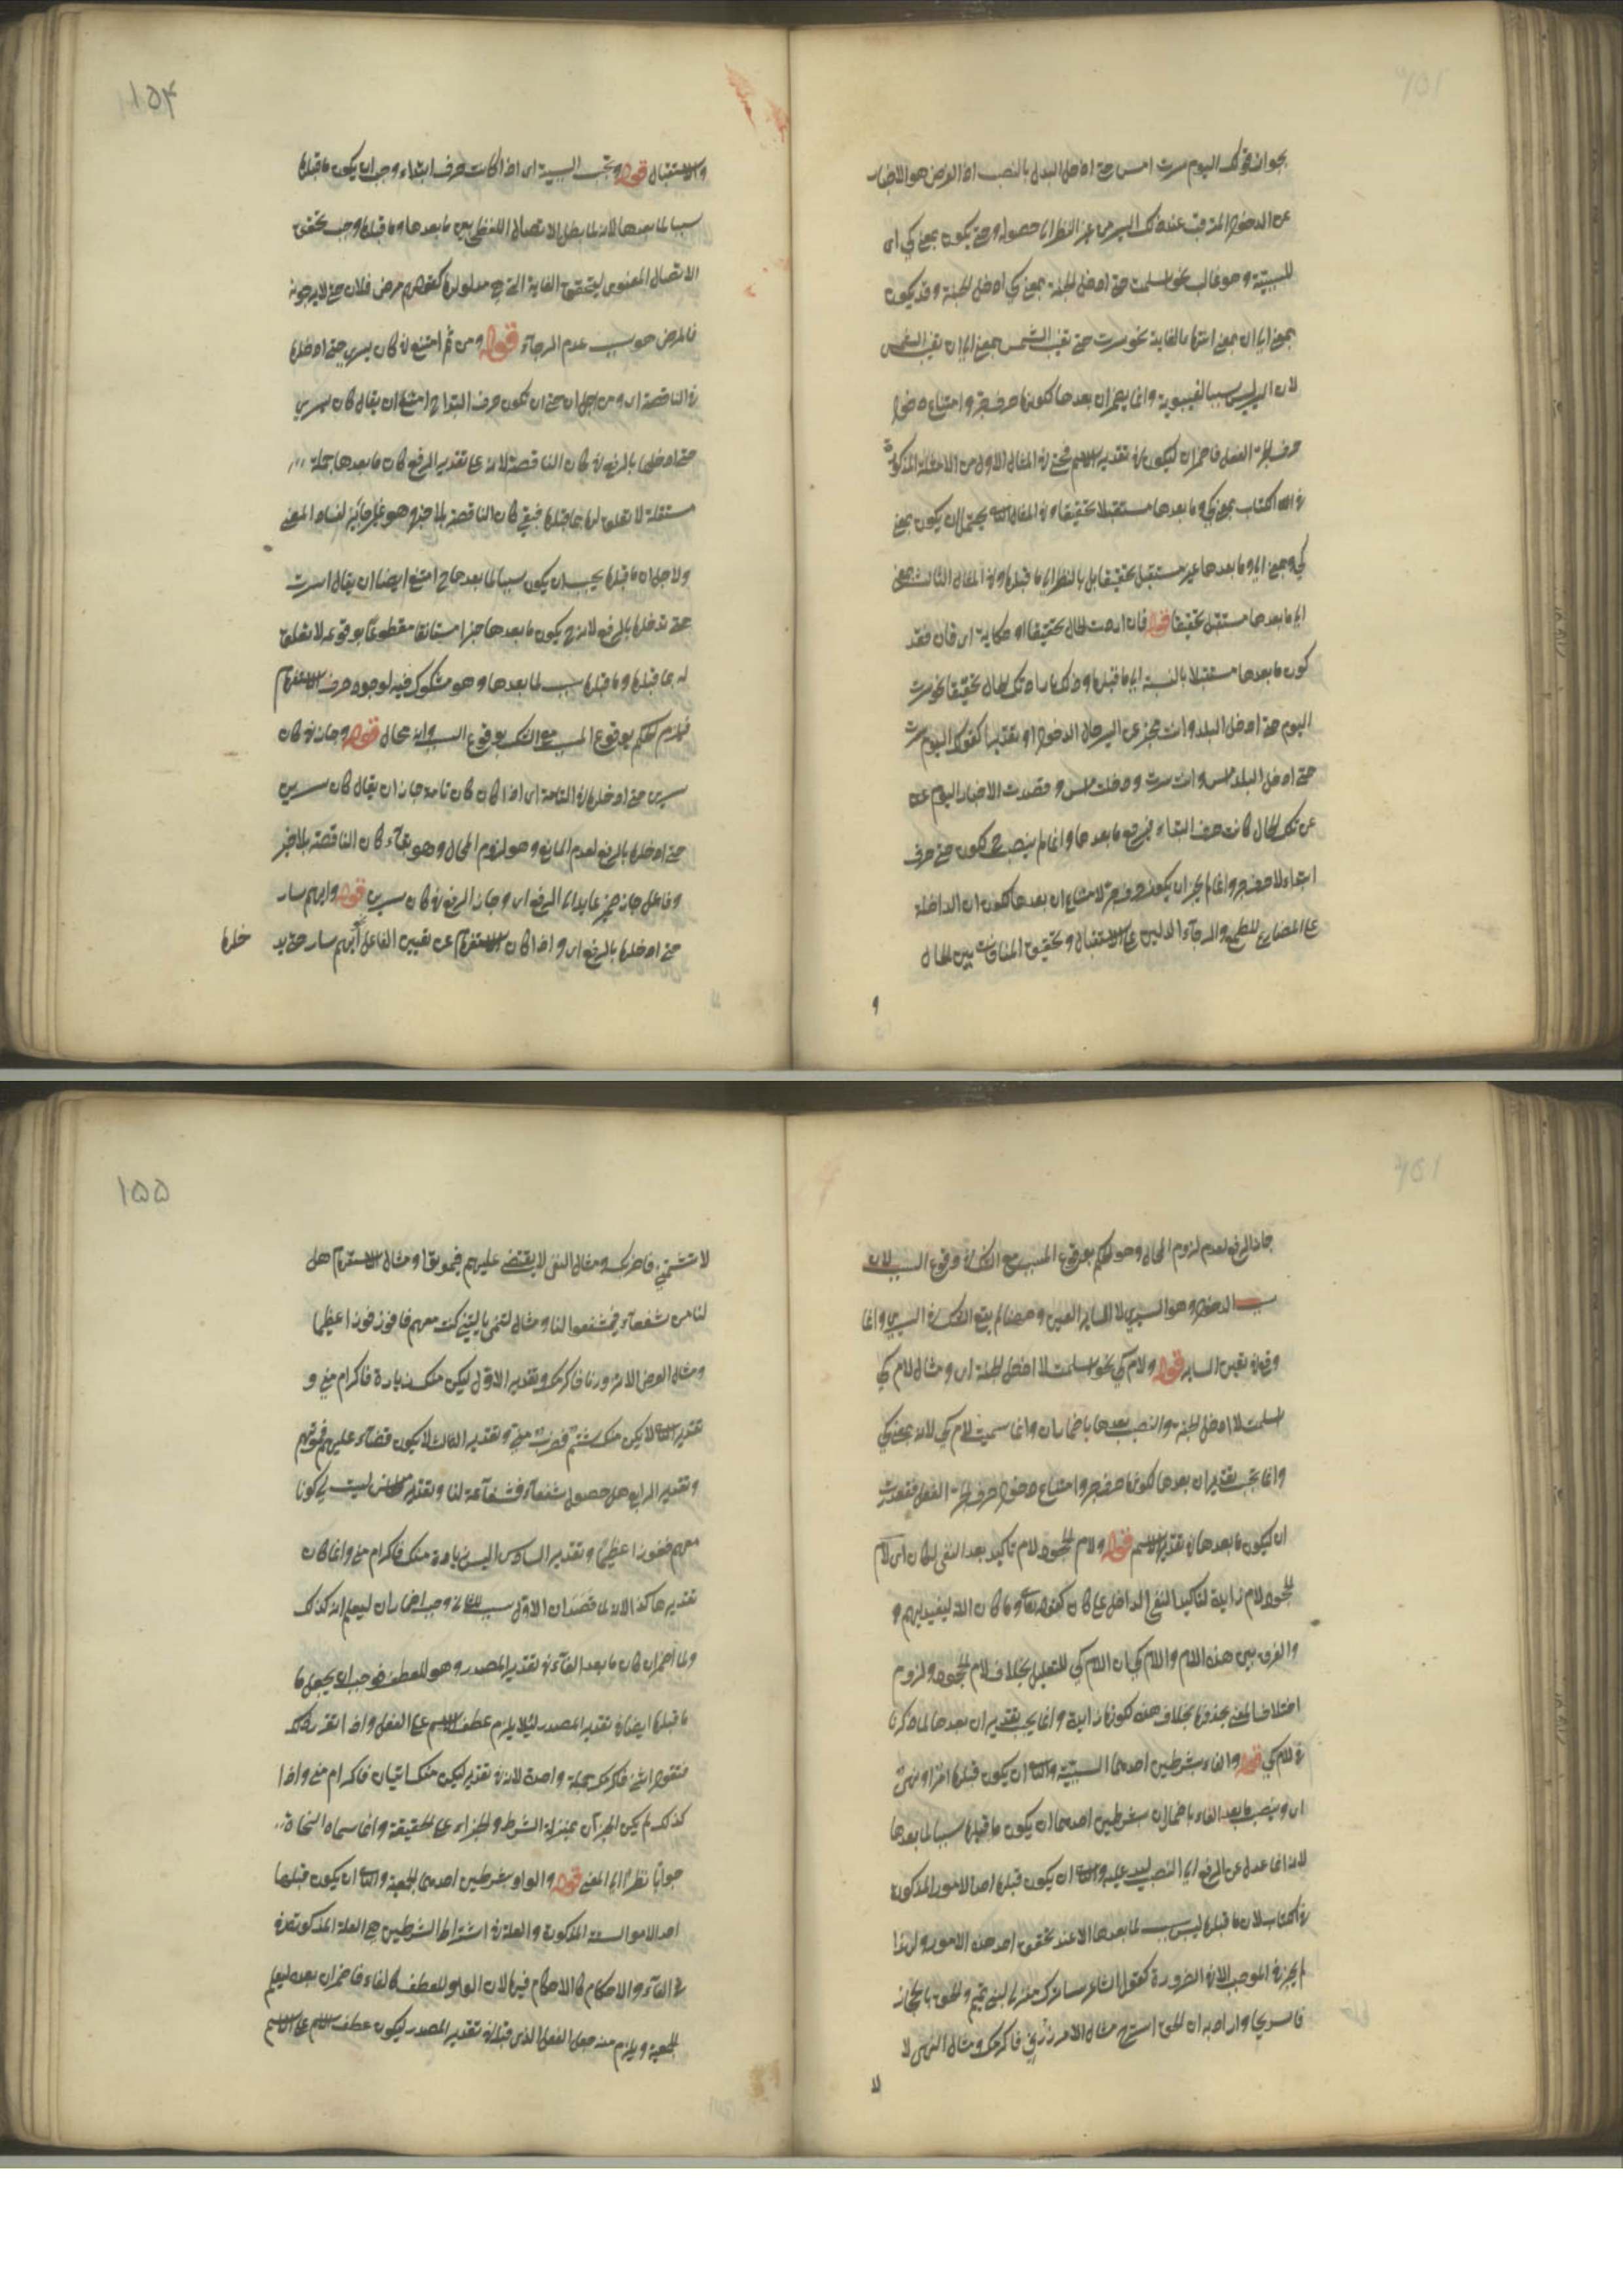 بجواز قولك اليوم سرت امس حتى ادخل البلد بالنصب اذ الغرض هو الاخبار
عن الدخول المترقب عند ذلك السير من غير النظر الى حصوله وحتى يكون بمعنى كي اى
للسببية وهو غالب نحو اسلمت حتى ادخل الجنة بمعنى كي ادخل الجنة وقد يكون
بمعنى الى ان بمعنى انتهاء الغاية نحو سرت حتى تغيب الشمس بمعنى الى ان تغيب الشمس
لان السير ليس سببا لغيبوبة وانما يضمر ان بعدها لكونها حرف جر وامتناع دخول
حرف الجر الفعل فاضمر ان ليكون فى تقدير الاسم فحتى فى المثال الاول من الامثلة المذكورة
فى الكتاب بمعنى كي وما بعدها مستقبلا تحقيقا وفى المثال الثانى يحتمل ان يكون بمعنى
كي وبمعنى الى وما بعدها غير مستقبل تحقيقا بل بالنظر الى ما قبلها وفى المثال الثالث بمعنى
الى ما بعدها مستقبل تحقيقا قوله فان اردت الحال تحقيقا او حكاية اى فان فقد
كون ما بعدها مستقبلا بالنسبة الى ما قبلها وذلك بارادتك الحال تحقيقا نحو سرت
اليوم حتى ادخل البلد وانت مخبر عن السير حال الدخول او تقديرا كقولك اليوم سرت
حتى ادخل البلد امس وانت سرت ودخلت امس وقصدت الاخبار اليوم عن
عن تلك الحال كانت حرف ابتداء فيرفع ما بعدها وانما لم ينصب ح لكون حتى حرف
ابتداء لا حرف جر وانما لم يجز ان يكون حرف جر لامتناع ان بعدها لكون ان الداخلة
على المضارع للطمع والرجاء الدالين على الاستقبال وتحقيق المنافات بين الحال
و
١٥٤
والاستقبال قوله وتجب السببية اى اذا كانت حرف ابتداء وجب ان يكون ما قبلها
سببا لما بعدها لانه لما بطل الاتصال اللفظى بين ما بعدها وما قبلها وجب تحقق
الاتصال المعنوى ليتحقق الغاية التى هى مدلولها كقولهم مرض فلان حتى لا يرجونه
فالمرض موجب عدم الرجاء قوله ومن ثم امتنع فى كان سيرى حتى ادخلها
فى الناقصة اى ومن اجل ان حتى ان تكون حرف ابتداء ح امتنع ان يقال كان سيرى
حتى ادخلها بالرفع فى كان الناقصة لانه على تقدير الرفع كان ما بعدها جملة
مستقلة لا تعلق لها بما قبلها فبقى كان الناقصة بلا خبر وهو غير جائز لفساد المعنى
ولاجل ان ما قبلها يجب ان يكون سببا لما بعدها ح امتنع ايضا ان يقال اسرت
حتى تدخلها بالرفع لانه ح يكون ما بعدها خبرا مستانفا مقطوعا بوقوعه لا تعلق
له بما قبلها وما قبلها سبب لما بعدها وهو مشكوك فيه لوجود حرف الاستفهام
فيلزم الحكم بوقوع المسبب مع الشك بوقوع السبب وانه محال قوله وجاز فى كان
سيرى حتى ادخلها فى التامة اى اذا كان كان تامة جاز ان يقال كان سيرى
حتى ادخلها بالرفع لعدم المانع وهو لزوم المحال وهو بقاء كان الناقصة بلا خبر
وفاعل جاز ضمير عايد الى الرفع اى وجاز الرفع فى كان سيرى قوله وايهم سار
حتى ادخلها بالرفع اى واذا كان الاستفهام عن تعيين الفاعل ايهم سار حتى يد
خلها
جاز الرفع لعدم لزوم المحال وهو الحكم بوقوع المسبب مع الشك فى وقوع السبب لان
سبب الدخول وهو السير لا السائر المعين وههنا لم يقع الشك فى السير وانما
وقع فى تعين السائر قوله ولام كي نحو اسلمت لادخل الجنة اى ومثال لام كي
اسلمت لادخل الجنة والنصب بعدها باضمار ان وانما سميت لام كي لانه بمعنى كي
وانما يجب تقدير ان بعدها لكونها حرف جر وامتناع دخول حرف الجر الفعل فقدرت
ان ليكون ما بعدها فى تقدير الاسم قوله ولام الجحود لام تاكيد بعد النفى لكان اى لام
الجحود لام زايدة لتاكيد النفى الداخل على كان كقوله تعالى وما كان الله ليعذبهم و
والفرق بين هذه اللام واللام كي ان اللام كي للتعليل بخلاف لام الجحود ولزوم
اختلاف المعنى بحذفها بخلاف هذه لكونها زايدة وانما يجب تقدير ان بعدها لما ذكرنا
فى لام كي قوله والفاء بشرطين احدهما السببية والثانى ان يكون قبلها امرا ونهى
اى وينصب ما بعد الفاء باضمار ان بشرطين احدهما ان يكون ما قبلها سببا لما بعدها
لانه انما عدل عن الرفع الى النصب ليدل عليه والثانى ان يكون قبلها احد الامور المذكورة
فى الكتاب لان ما قبلها ليس بسبب لما بعدها الا عند تحقق احد هذه الامور ولهذا
لم يجز فى الموجب الا فى الضرورة كقول الشاعر ساترك منزلى لبنى تميم والحق بالحجاز
فاستريحا واراد به ان الحق استرح مثال الامر زرنى فاكرمك ومثال النهى لا
لا
١٥٥
لا تشتمنى فاضربك ومثال النفى لا يقضى عليهم فيموتوا ومثال الاستفهام هل
لنا من شفعاء فيشفعوا لنا ومثال التمنى يا ليتنى كنت معهم فافوز فوزا عظيما
ومثال العرض الا تزورنا فاكرمك وتقدير الاول ليكن منك زيارة فاكرام منى و
تقدير الثانى لا يكن منك شتم فضرب منى وتقدير الثالث لا يكون قضاء عليهم فموتهم
وتقدير الرابع هل حصول شفعاء فشفاعة لنا وتقدير الخامس ليت لى كونا
معهم ففوزا عظيما وتقدير السادس اليس زيادة منك فاكرام منى وانما كان
تقديرها كذا لانه لما قصد ان الاول سبب للثانى وجب اضمار ان ليعلم انه كذلك
ولما اضمر ان كان ما بعد الفاء فى تقدير المصدر وهو للعطف فوجب ان يجعل ما
ما قبلها ايضا فى تقدير المصدر لئلا يلزم عطف الاسم على الفعل واذا تقرر ذلك
فتقول ائتنى فاكرمك جملة واحدة لانه فى تقدير ليكن منك اتيان فاكرام منى واذا
كذلك لم يكن الجزآن بمنزلة الشرط والجزاء على الحقيقة وانما سماه النحاة
جوابا نظرا الى المعنى قوله والواو بشرطين احدهما الجمعية والثانى ان يكون قبلها
احد الامور الستة المذكورة والعلة فى اشتراط الشرطين هى العلة المذكورة فى
فى الفاء والاحكام كالاحكام فيها لان الواو للعطف كالفاء فاضمر ان بعده ليعلم
الجمعية ويلزم منه جعل الفعل الذى قبله فى تقدير المصدر ليكون عطف الاسم على الاسم